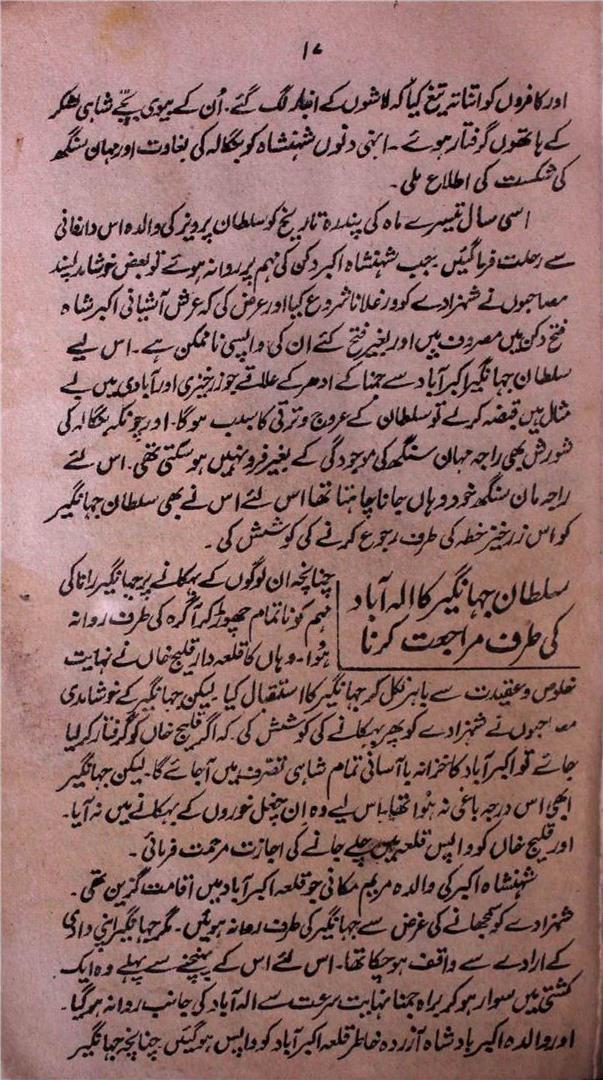 ۱۷
اور کافروں کو اتنا تہ تیغ کیا کہ لاشوں کے انبار لگ گئے۔ اُن کے بیوی بچّے شاہی لشکر
کے ہاتھوں گرفتار ہوئے۔ انہی دنوں شہنشاہ کو بنگالہ کی بغاوت اور جہان سنگھ
کی شکست کی اطلاع ملی۔
اسی سال تیسرے ماہ کی پندرہ تاریخ کو سلطان پرویز کی والدہ اس دارِفانی
سے رحلت فرما گئیں۔ جب شہنشاہ اکبر دکن کی مہم پر روانہ ہوئے تو بعض خوشامد پسند
مصاحبوں نے شہزادے کو ورغلانا شروع کیا اور عرض کی کہ عرش آشیانی اکبر شاہ
فتح دکن میں مصروف ہیں اور بغیر فتح کئے ان کی واپسی ناممکن ہے۔ اس لیے
سلطان جہانگیر اکبر آباد سے جمنا کے ادھر کے علاقے جو زرخیزی اور آبادی میں بے
مثال ہیں قبضہ کر لے تو سلطان کے عروج و ترقی کا سبب ہوگا۔ اور چونکہ بنگالہ کی
شورش بھی راجہ مہان سنگھ کی موجودگی کے بغیر فرو نہیں ہو سکتی تھی۔ اس لئے
راجہ مان سنگھ خود وہاں جانا چاہتا تھا اس لئے اس نے بھی سلطان جہانگیر
کو اس زرخیز خطہ کی طرف رجوع کرنے کی کوشش کی۔
سلطان جہانگیر کا الہ آباد
کی طرف مراجعت کرنا
چنانچہ ان لوگوں کے بہکانے پر جہانگیر رانا کی
مہم کو نا تمام چھوڑ کر آگرہ کی طرف روانہ
ہُوا۔ وہاں کا قلعہ دار قلیج خاں نے نہایت
خلوص و عقیدت سے باہر نکل کر جہانگیر کا استقبال کیا۔ لیکن جہانگیر کے خوشامدی
مصاحبوں نے شہزادے کو پھر بہکانے کی کوشش کی۔ کہ اگر قلیج خاں کو گرفتار کر لیا
جائے تو اکبر آباد کا خزانہ با آسانی تمام شاہی تصرف میں آجائے گا۔ لیکن جہانگیر
ابھی اس درجہ باغی نہ ہُوا تھا۔ اس لیے وہ ان چغل خوروں کے بہکانے میں نہ آیا۔
اور قلیج خاں کو واپس قلعہ میں چلے جانے کی اجازت مرحمت فرمائی۔
شہنشاہ اکبر کی والدہ مریم مکانی جو قلعہ اکبر آباد میں اقامت گزین تھی۔
شہزادے کو سمجھانے کی غرض سے جہانگیر کی طرف روانہ ہوئیں۔ مگر جہانگیر اپنی دادی
کے ارادے سے واقف ہو چکا تھا۔ اس لئے اس کے پہنچنے سے پہلے وہ ایک
کشتی میں سوار ہو کر براہ جمنا نہایت سرعت سے الہ آباد کی جانب روانہ ہو گیا۔
اور والدہ اکبر بادشاہ آزردہ خاطر قلعہ اکبر آباد کو واپس ہو گئیں۔ چنانچہ جہانگیر